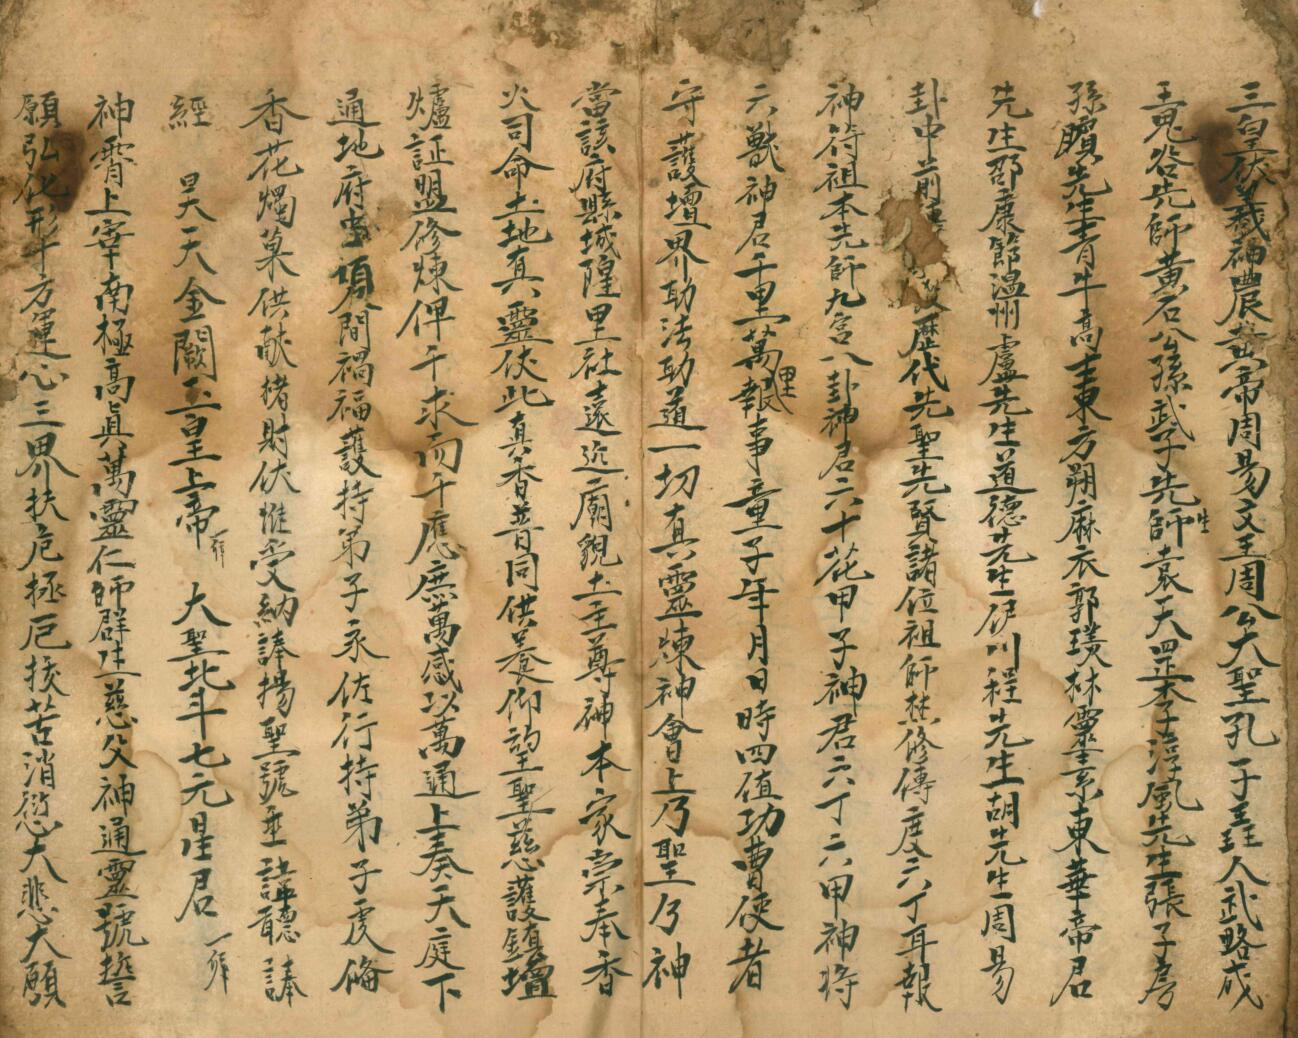 三皇伏羲神農黃帝周易文王周公大聖孔子聖人武略成
王鬼谷先師黃石公孫武子先師生袁天罡李子淳風先生張子房
孫臏先生青牛高士東方朔麻衣郭璞林靈素東華帝君
先生邵康節溫州盧先生道德先生伊川程先生胡先生周易
卦中前歷代先聖先賢諸位祖師焚修傳度六丁耳報
神符祖本先師九宮八卦神君六十花甲子神君六丁六甲神将
六獸神君千里萬里報事童子年月日時四值功曹使者
守護壇界助法助道一切真靈煉神會上乃聖乃神
當該府縣城隍里社遠近廟貌土主尊神本家崇奉香
火司命土地真靈伏此真香普同供養仰望聖慈護鎮壇
爐証盟修煉俾千求而千應庶萬感以萬通上奏天庭下
通地府虫須間禍福護持弟子永佐行持弟子虔俻
香花燭菓供献楮財伏惟受納諱揚聖號垂謹聽諱
經 昊天金闕玉皇上帝 一拜 大聖北斗七元星君 一拜
神霄上宰南極高真萬靈仁師群生慈父神通靈號誓
願弘化形十方運心三界扶危拯厄拔苦消愆大悲大願